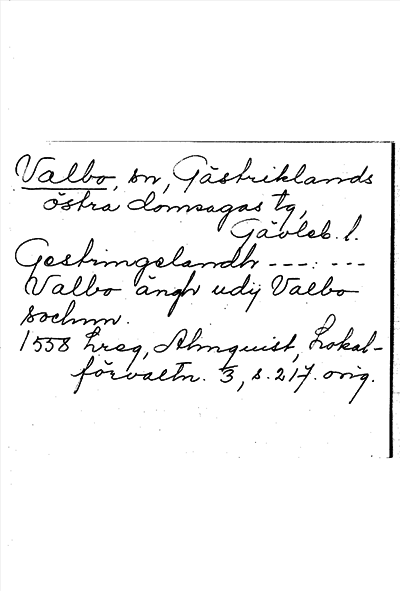 Valbo, sn, Gästriklands
östra domsagas tg,
Gävleb. l.
Gestringelandh ---: ---
Valbo ängh udij Valbo
sochnn.
1558 hreg, Almquist, Lokal-
förvaltn. 3, s. 217. orig.